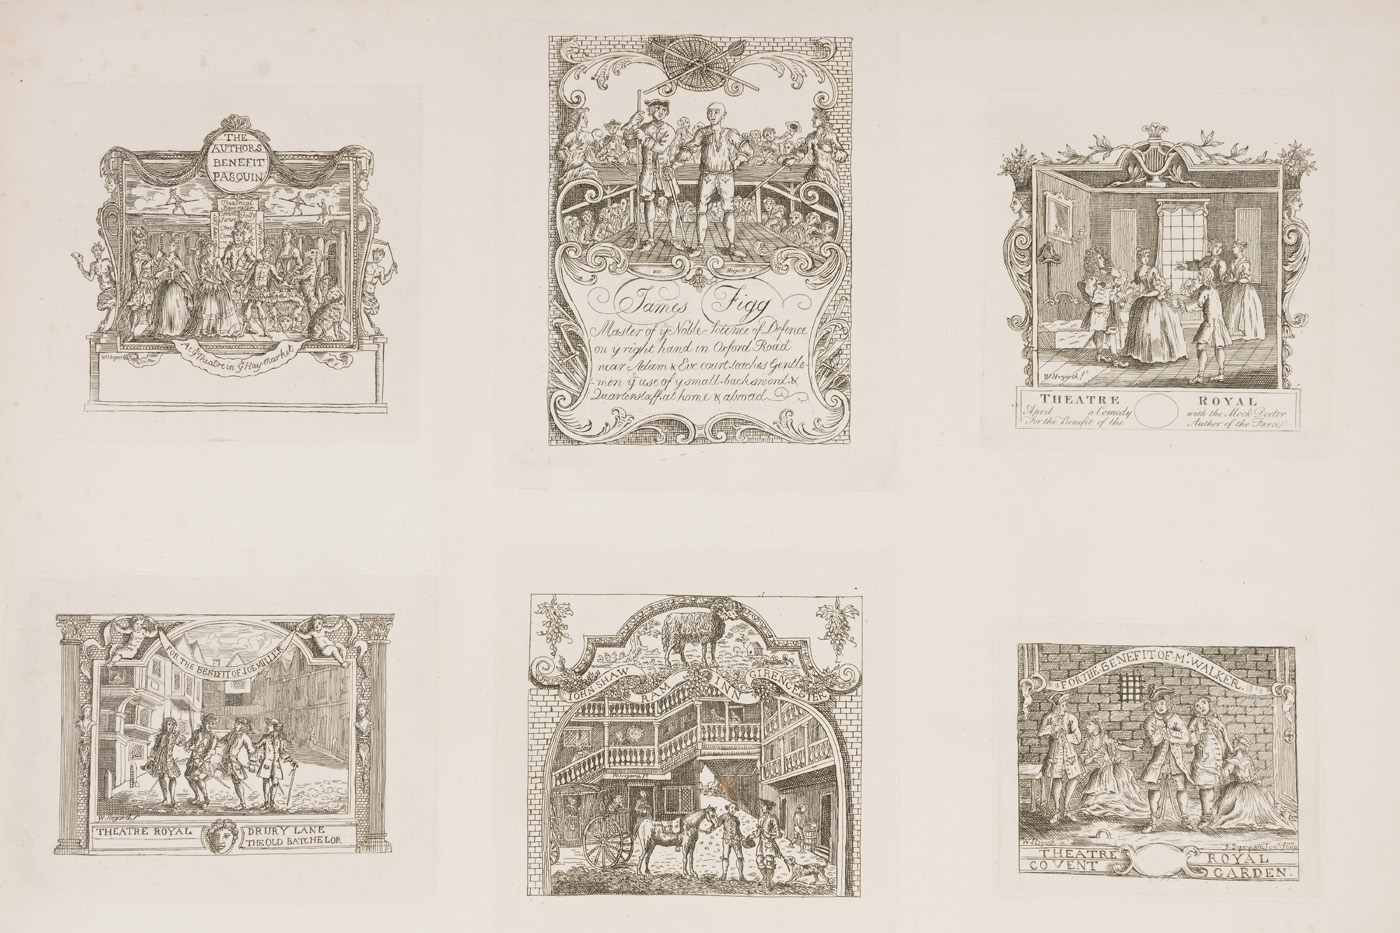 THE
AUTHORS
BENEFIT
PASQUIN
At ye Theatre in ye Hay-Market
W Hogarth
Hogarth f
James Figg
Master of ye Noble Science of Defence
on ye right hand in Oxford Road
near Adam & Eve court teaches Gentle-
-men ye use of ye small-backsword &
Quarterstaff at home & abroad
W Hogarth ft
THEATRE ROYAL
April a Comedy with the Mock Doctor
For the Benefit of the Author of the Farce
FOR THE BENEFIT OF JOE MILLER
W. Hogarth f
THEATRE ROYAL DRURY LANE
THE OLD BATCHELOR
JOHN SHAW RAM INN CIRENCESTER
FOR THE BENEFIT OF Mr WALKER
THEATRE ROYAL
COVENT GARDEN.